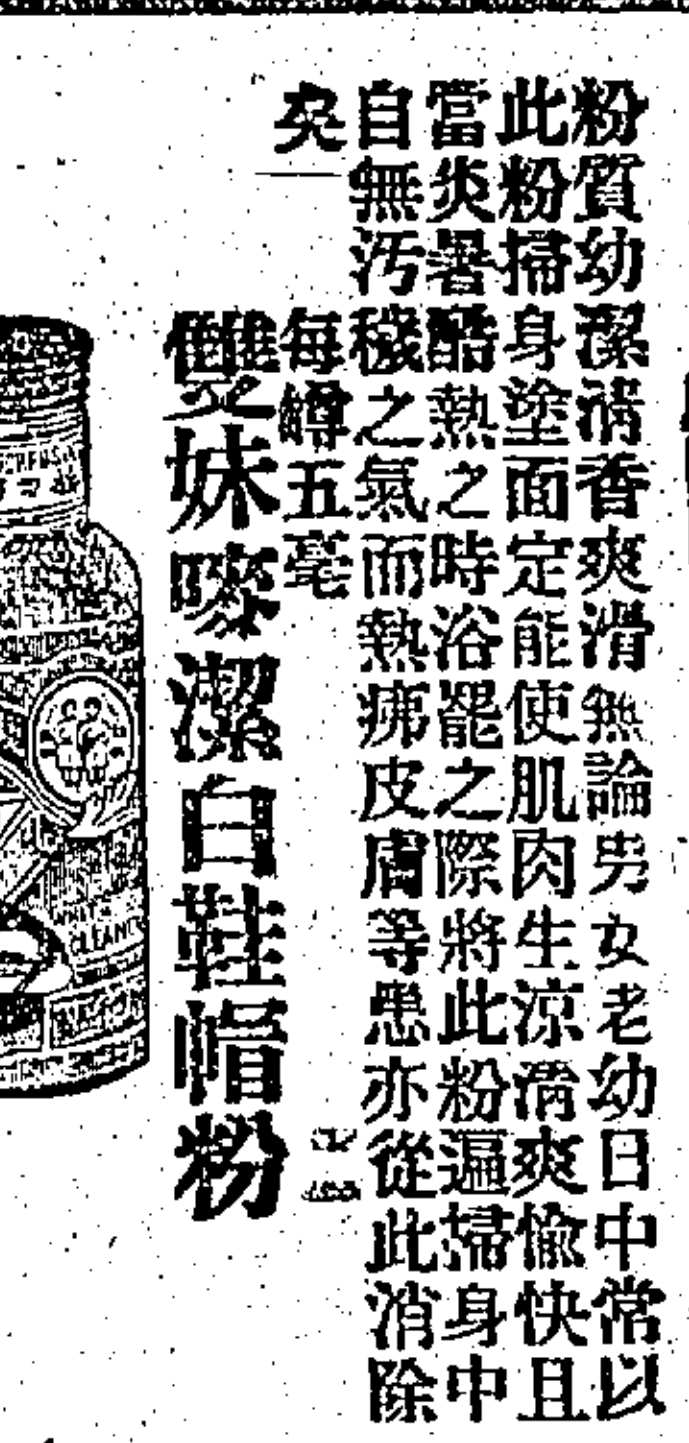 粉質幼潔清香爽滑無論男女老幼日中常以
此粉掃身塗面定能使肌肉生涼清爽愉快且
當炎暑酷熱之時浴罷之際將此粉遍掃身中
自無汚穢之氣而熱疿皮膚等患亦從此消除
矣
每罇五毫
雙妹嚟潔白鞋帽粉
CLEANE